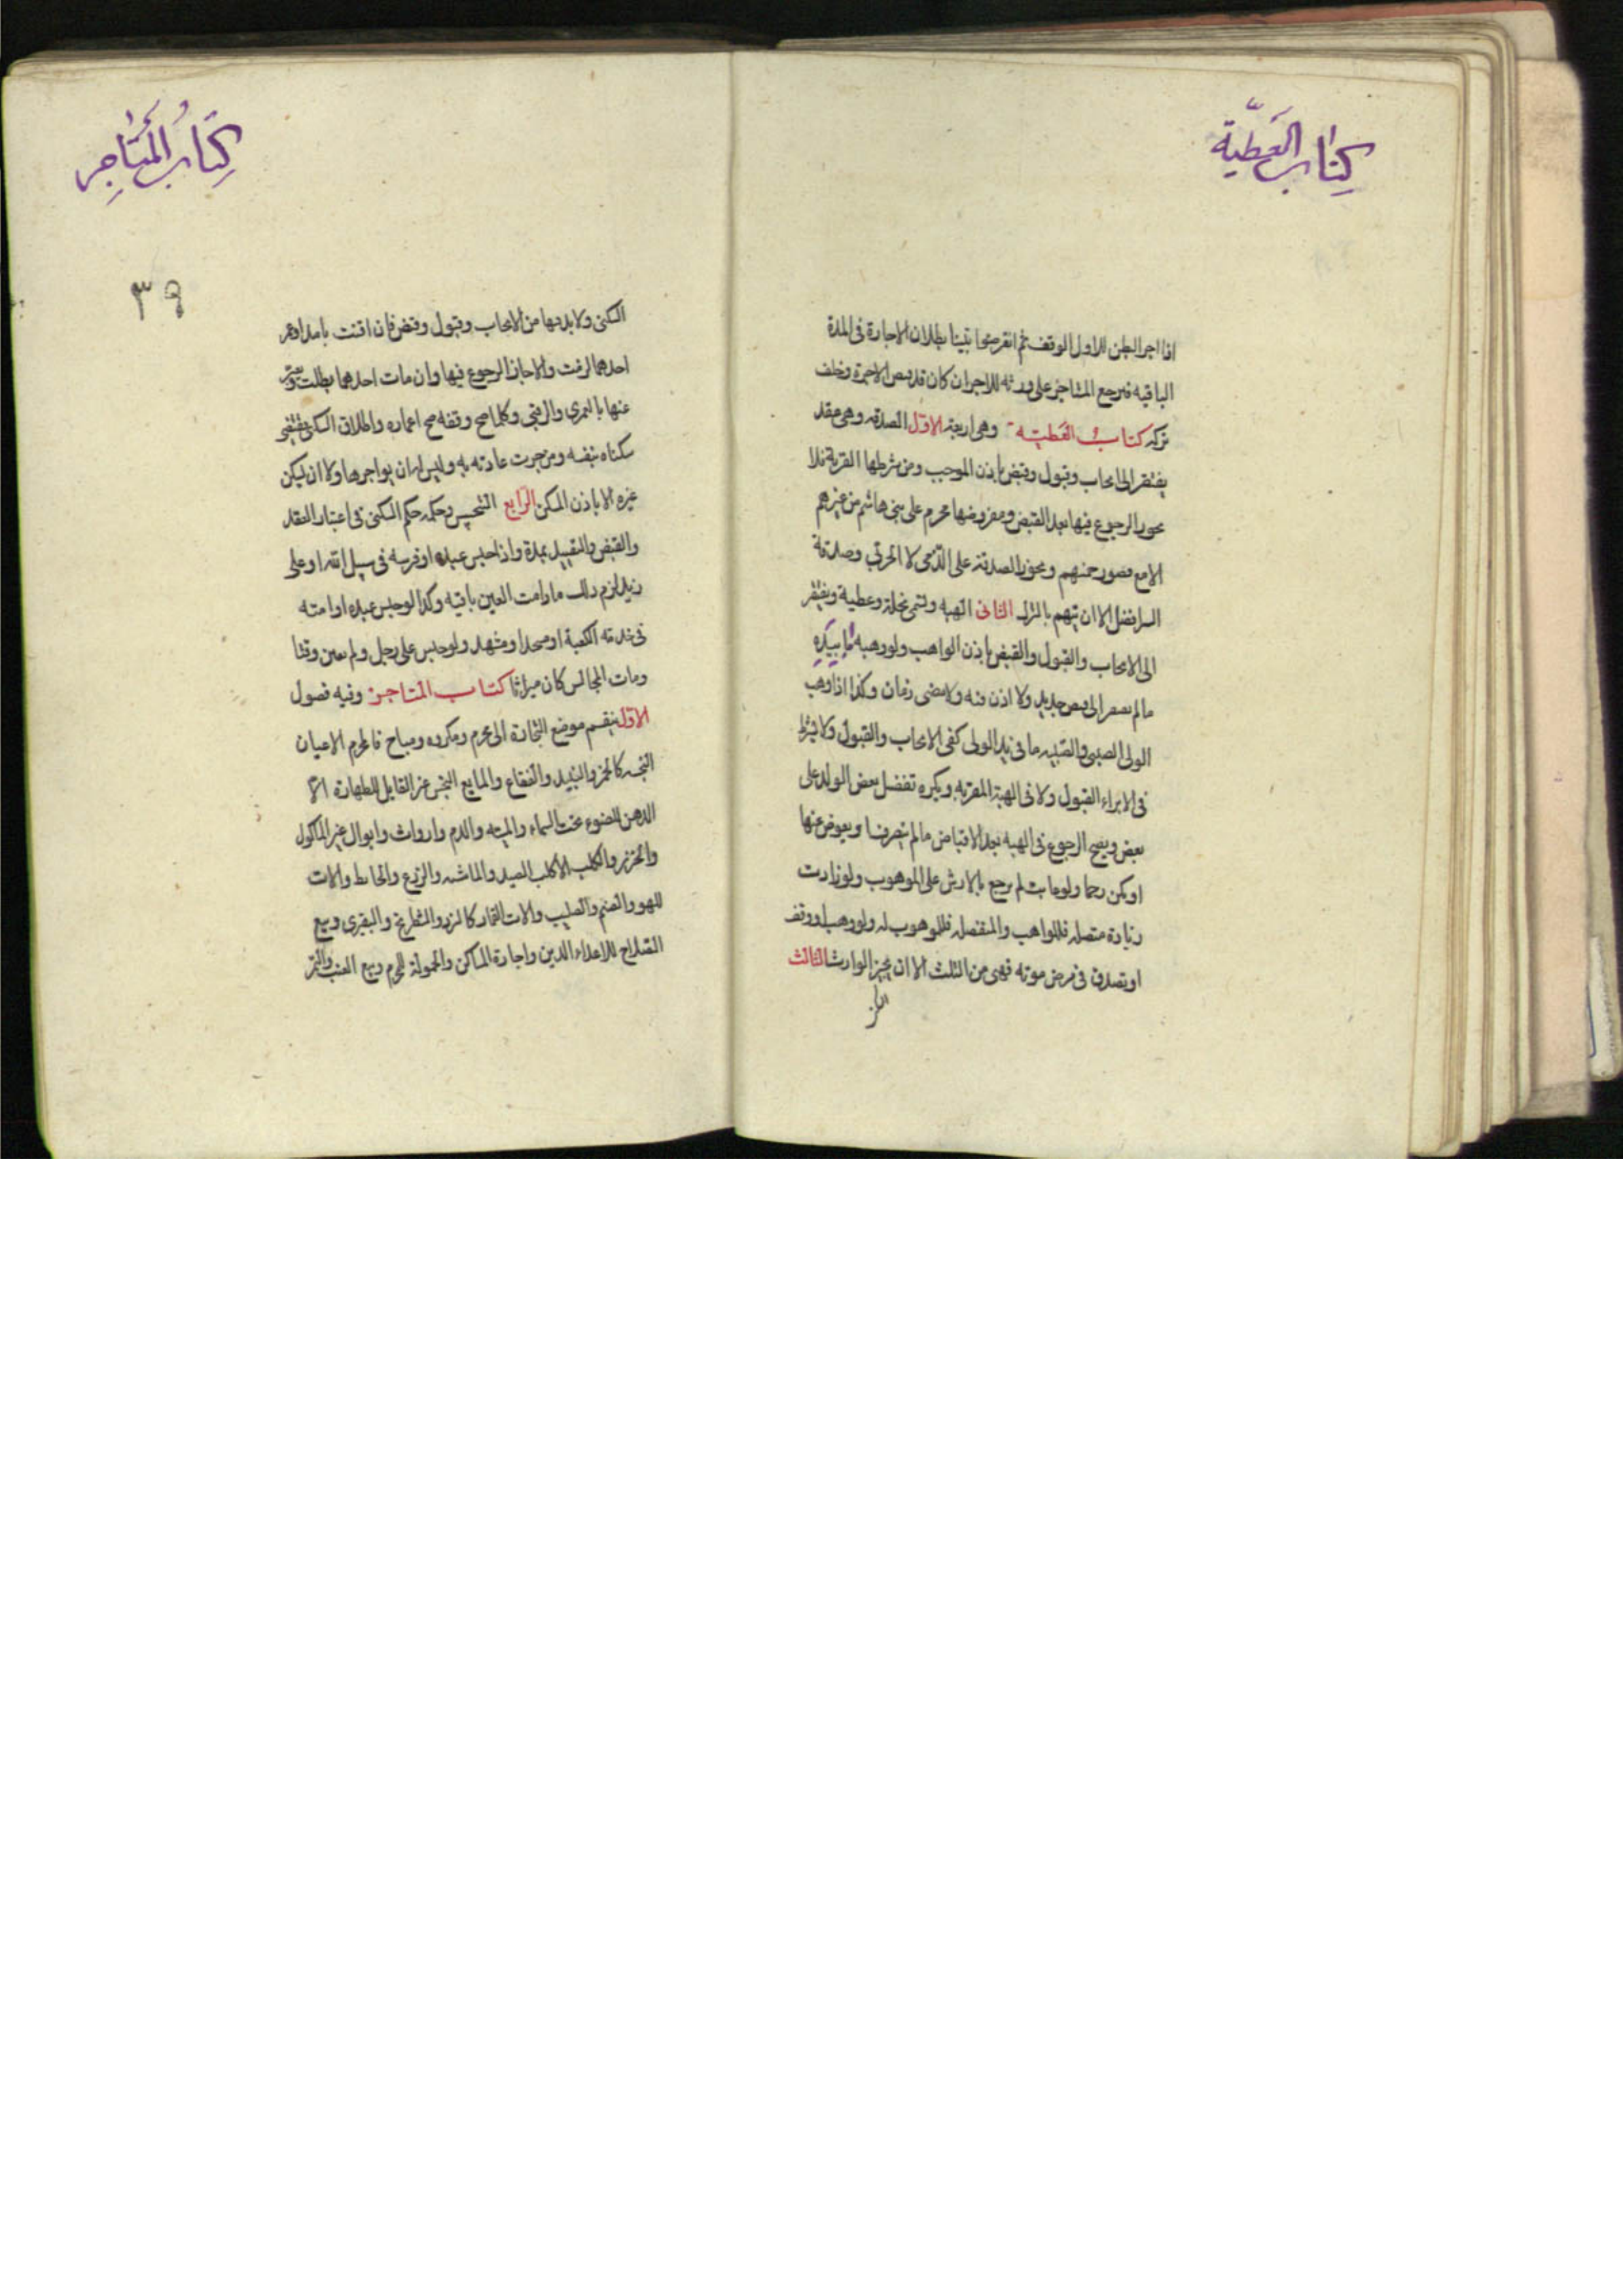 كتاب العطية
اذا اجر البطن الاول الوقف ثم انقرضوا تبينا بطلان الاجارة فى المدة
الباقيه فيرجع المستاجر على ورثه الاجر ان كان قد قبض الاجرة وخلف
تركه كتاب العطيه وهى اربعة الاول الصدقه وهى عقد
يفتقر الى ايجاب وقبول وقبض باذن الموجب ومن شرطها القربة فلا
يجوز الرجوع فيها بعد القبض ومفروضها محرم على بنى هاشم من غيرهم
الا مع قصور خمسهم ويجوز الصدقة على الذمى لا الحربى وصدقة
السر افضل الا ان يتهم بالترك الثانى الهبه وتسمى نحلة وعطية ويفتقر
الى الايجاب والقبول والقبض باذن الواهب ولو وهبه ما بيده
ما لم يفتقر الى قبض جديد ولا اذن فيه ولا مضى زمان وكذا اذا وهب
الولى الصبى والصبيه ما فى يد الولى كفى الايجاب والقبول ولا يشترط
فى الابراء القبول ولا فى الهبة القربه ويكره تفضيل بعض الولد على
بعض ويصح الرجوع فى الهبه بعد الاقباض ما لم يتصرف او يعوض عنها
او يكن رحما ولو عابت لم يرجع بالارش على الموهوب ولو زادت
زيادة متصله فللواهب والمنفصله فللموهوب له ولو وهب او وقف
او تصدق فى مرض موته فهى من الثلث الا ان يجيز الوارث الثالث
السكنى
كتاب المتاجر
٣٩
السكنى ولا بد فيها من الايجاب وقبول وقبض فان اقتت بامد او عمر
احدهما لزمت والا جاز الرجوع فيها وان مات احدهما بطلت ويعبر
عنها بالعمرى والرقبى وكلما صح وقفه صح اعماره واطلاق السكنى يقتضى
سكناه بنفسه ومن جرت عادته به وليس له ان يواجرها ولا ان يسكن
غيره الا باذن المسكن الرابع التحبيس وحكمه حكم السكنى فى اعتبار العقد
والقبض والتقييد بمدة واذا حبس عبده او فرسه فى سبيل الله او على
زيد لزم ذلك ما دامت العين باقيه وكذا لو حبس عبده او امته
فى خدمة الكعبة او مسجد او مشهد ولو حبس على رجل ولم يعين وقتا
ومات الحابس كان ميراثا كتاب المتاجر وفيه فصول
الاول ينقسم موضع التجارة الى محرم ومكروه ومباح فالمحرم الاعيان
النجسه كالخمر والنبيذ والفقاع والمايع النجس غير القابل للطهارة الا
الدهن للضوء تحت السماء والميته والدم وارواث وابوال غير الماكول
والخنزير والكلب الا كلب الصيد والماشيه والزرع والحائط والات
اللهو والصنم والصليب والات القمار كالنرد والشطرنج والبقيرى وبيع
السلاح لاعداء الدين واجارة المساكن والحمولة للمحرم وبيع العنب والتمر